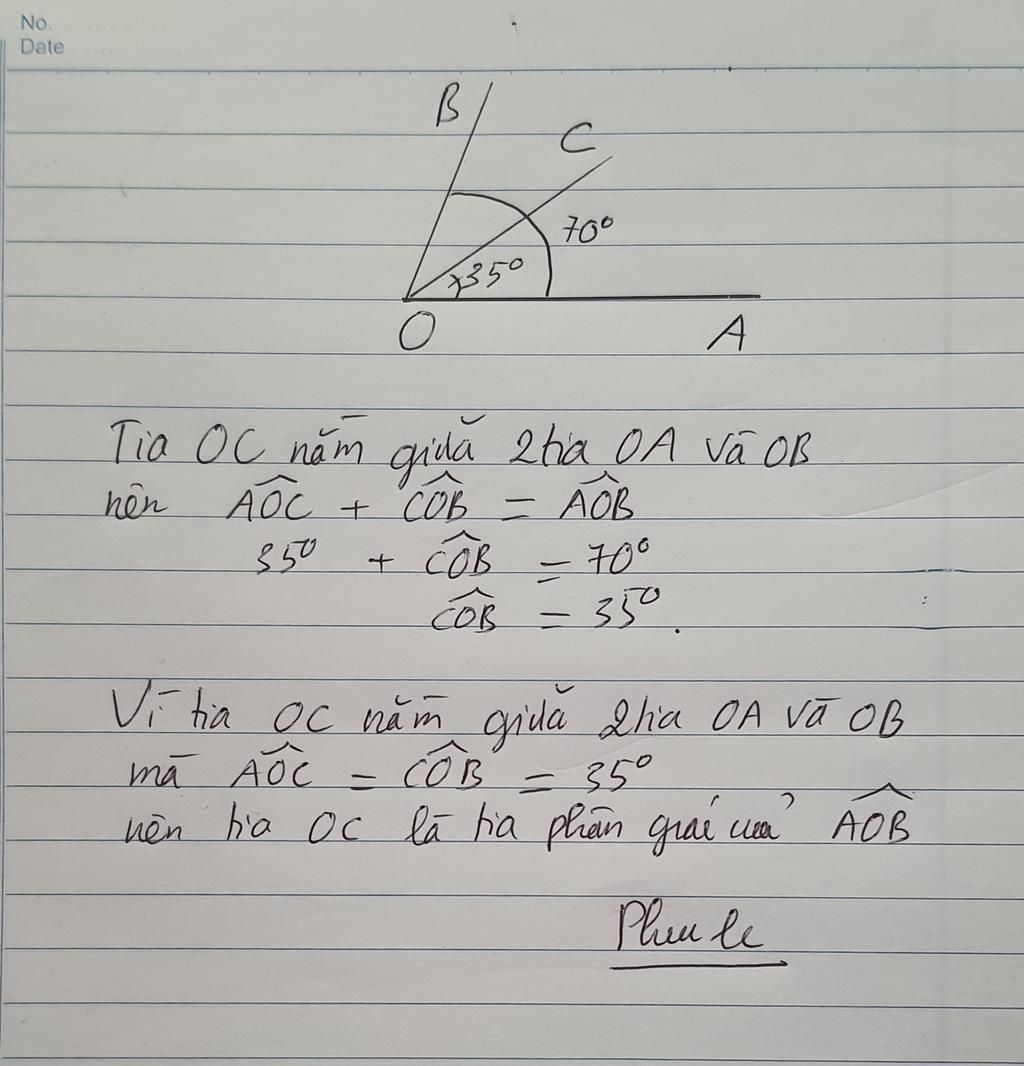 No.
Date
B
C
70°
35°
O
A
Tia OC nằm giữa 2 tia OA và OB
nên AOC + COB = AOB
35° + COB = 70°
COB = 35°.
Vì tia OC nằm giữa 2 tia OA và OB
mà AOC = COB = 35°
nên tia OC là tia phân giác của AOB